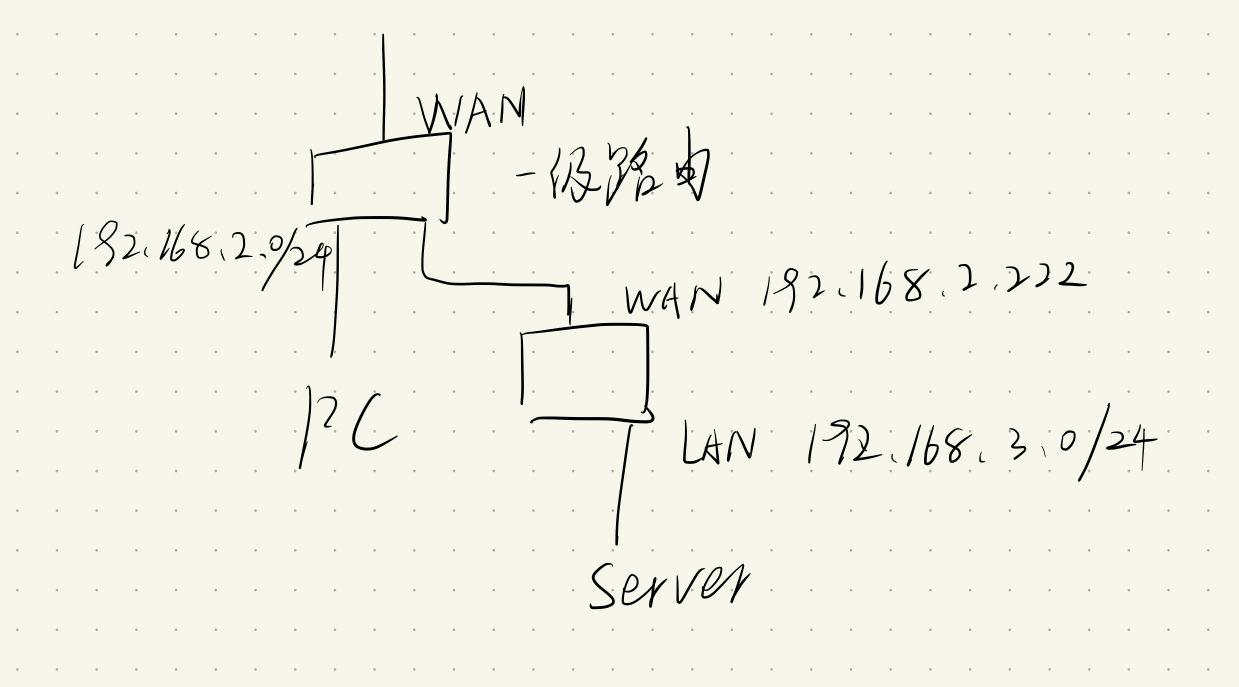 WAN
一级路由
192.168.2.0/24
WAN 192.168.2.222
PC
LAN 192.168.3.0/24
Server